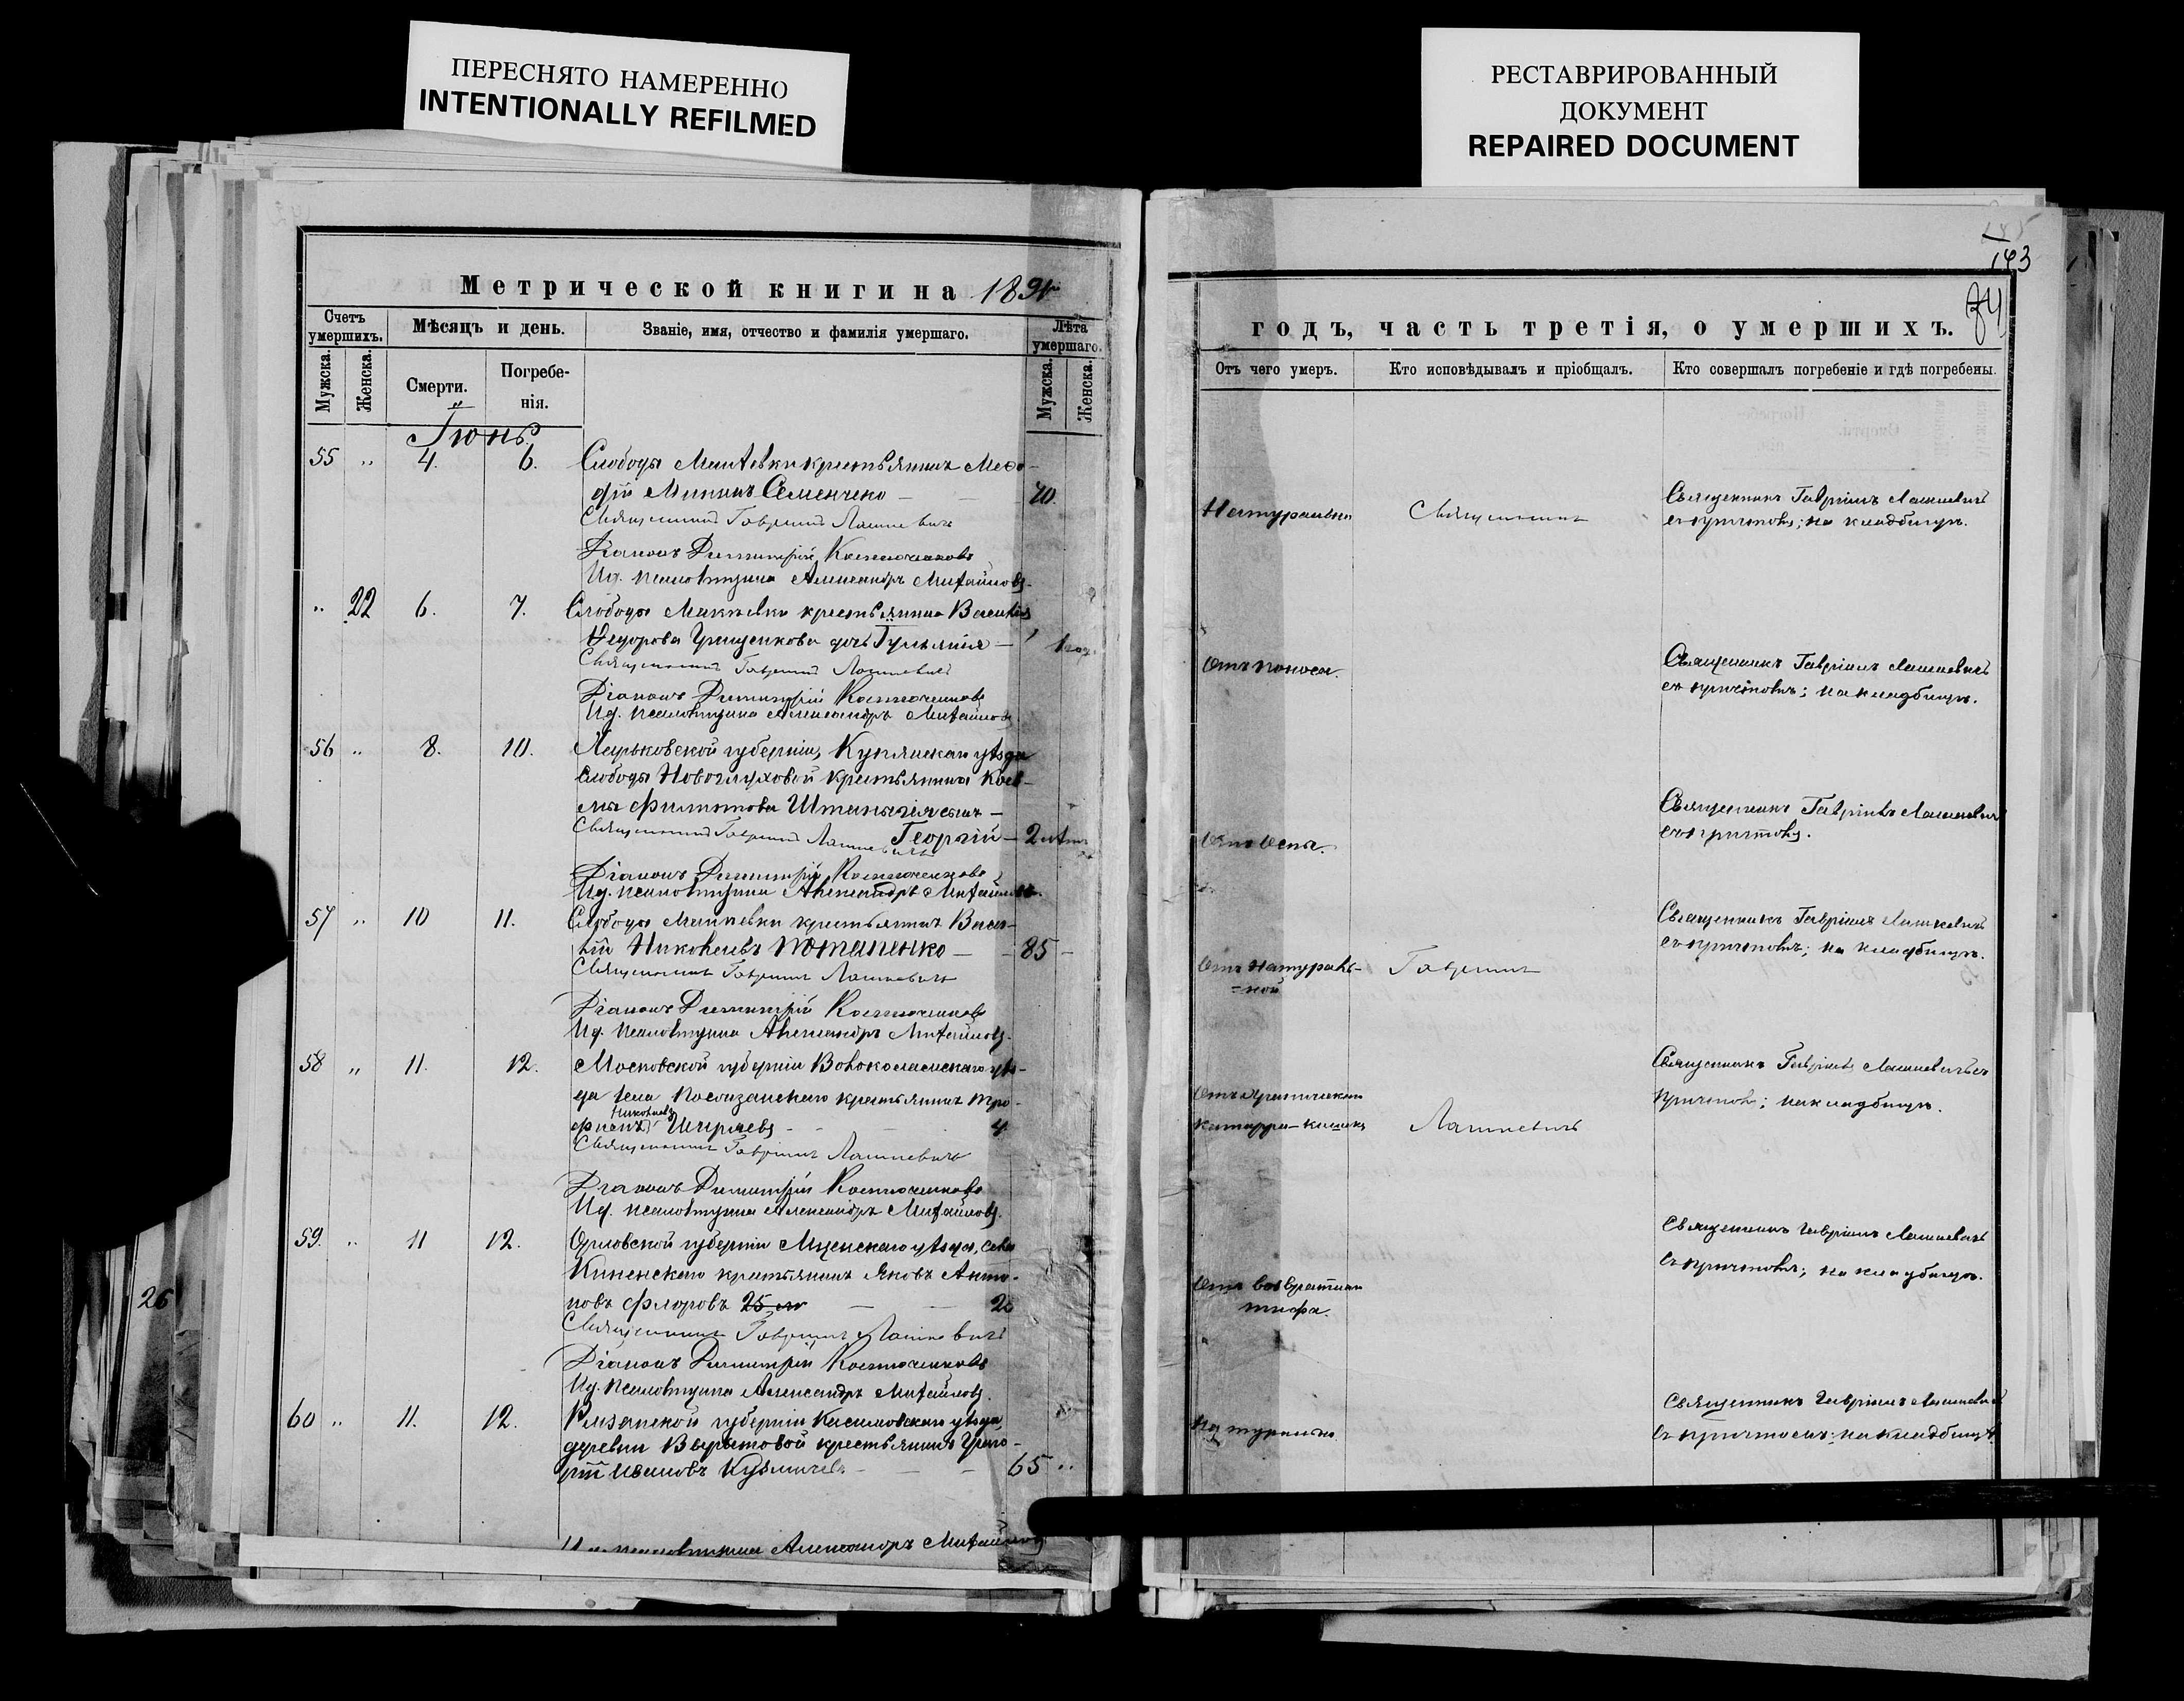 ПЕРЕСНЯТО НАМЕРЕННО
INTENTIONALLY REFILMED
РЕСТАВРИРОВАННЫЙ
ДОКУМЕНТ
REPAIRED DOCUMENT
Метрической книги на 189
Счетъ умершихъ.
Мѣсяцъ и день.
Званіе, имя, отчество и фамилія умершаго.
Лѣта умершаго.
Мужска.
Женска.
Смерти.
Погребе-
нія.
Мужска.
Женска.
Іюнь
55 „ 4. 6. Слободы Макѣевки крестьянинъ Меѳо-
дій Мининъ Семенченко — 70.
Священникъ Гавріилъ Лашкевичъ
Діаконъ Димитрій Костюченковъ
Ид. псаломщика Александръ Михайловъ
„ 22 6. 7. Слободы Макѣевки крестьянина Василія
Ѳедорова Грищенкова дочь —
Священникъ Гавріилъ Лашкевичъ
Діаконъ Димитрій Костюченковъ
Ид. псаломщика Александръ Михайловъ
56 „ 8. 10. Харьковской губерніи, Купянскаго уѣзда
слободы Новоглуховой крестьянина Кось-
мы Филиппова сынъ —
Священникъ Гавріилъ Лашкевичъ Георгій — 2 лѣтъ
Діаконъ Димитрій Костюченковъ
Ид. псаломщика Александръ Михайловъ
57 „ 10 11. Слободы Макѣевки крестьянинъ Васи-
лій Николаевъ Потапенко — 85 —
Священникъ Гавріилъ Лашкевичъ
Діаконъ Димитрій Костюченковъ
Ид. псаломщика Александръ Михайловъ.
58 „ 11. 12. Московской губерніи Волоколамскаго уѣз-
да села крестьянинъ Тро-
Николаевъ
фимъ Ширяевъ -
Священникъ Гавріилъ Лашкевичъ
Діаконъ Димитрій Костюченковъ
Ид. псаломщика Александръ Михайловъ.
59. „ 11 12. Орловской губерніи Мценскаго уѣзда, села
крестьянинъ Яковъ Анто-
новъ Флоровъ
Священникъ Гавріилъ Лашкевичъ
Діаконъ Димитрій Костюченковъ
Ид. псаломщика Александръ Михайловъ.
60 „ 11. 12. Рязанской губерніи Касимовскаго уѣзда,
деревни крестьянинъ Григо-
рій Ивановъ Кузьмичевъ — 65 „
псаломщика Александръ Михайловъ
26
143
годъ, часть третія, о умершихъ.
Отъ чего умеръ.
Кто исповѣдывалъ и пріобщалъ.
Кто совершалъ погребеніе и гдѣ погребены.
Натурально
Священникъ
Священникъ Гавріилъ Лашкевичъ
съ причтомъ; на кладбищѣ.
Отъ поноса.
Священникъ Гавріилъ Лашкевичъ
съ причтомъ; на кладбищѣ.
Отъ оспы.
Священникъ Гавріилъ Лашкевичъ
съ причтомъ.
Отъ натураль-
=ной
Гавріилъ
Священникъ Гавріилъ Лашкевичъ
съ причтомъ; на кладбищѣ.
Отъ хроническаго
катарра кишекъ
Лашкевичъ
Священникъ Гавріилъ Лашкевичъ съ
причтомъ; на кладбищѣ.
Отъ возвратнаго
тифа.
Священникъ Гавріилъ Лашкевичъ
съ причтомъ; на кладбищѣ.
Натурально.
Священникъ Гавріилъ Лашкевичъ
съ причтомъ; на кладбищѣ.